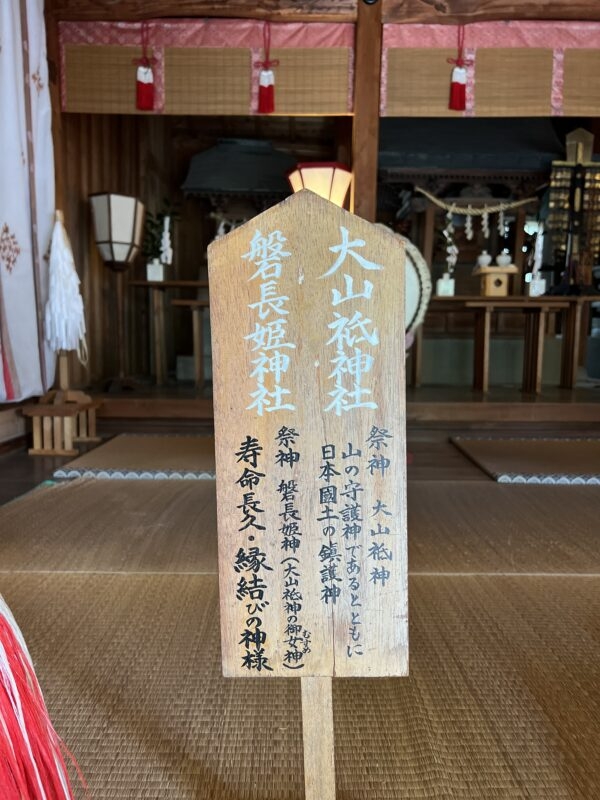 大山祇神社
祭神　大山祗神
山の守護神であるとともに
日本國土の鎮護神
磐長姫神社
祭神　磐長姫神(大山祗神の御女神)
むすめ
寿命長久・縁結びの神様